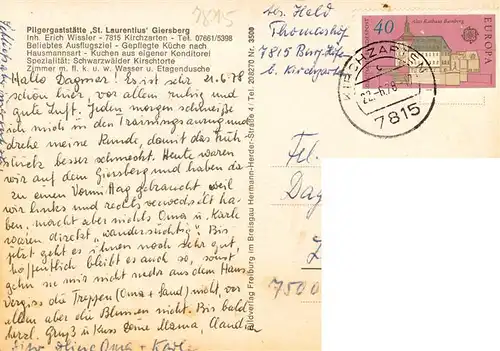 7815
Pilgergaststätte ‚St. Laurentius' Giersberg
Inh. Erich Wissler - 7815 Kirchzarten - Tel. 07661/5398
Beliebtes Ausflugsziel - Gepflegte Küche nach
Hausmannsart - Kuchen aus eigener Konditorei
Spezialität: Schwarzwälder Kirschtorte
Zimmer m. fl. k. u. w. Wasser u. Etagendusche
21.6.78
Hallo Dagmar! Es ist sehr
schön hier vor allem ruhig und
gute Luft. Jeden morgen schmeiße
ich mich in den Trainingsanzug und
drehe meine Runde, damit das Früh
stück besser schmeckt. Heute waren
wir auf dem Giersberg und haben da
zu einen Vormittag gebraucht weil
wir links und rechts verwechselt ha
ben, macht aber nichts Oma u. Karle
waren direkt „wandersüchtig". Bis
jetzt geht es ihnen noch sehr gut,
hoffentlich bleibt es auch so, sonst
gehn sie mir nicht mehr aus dem Haus
Vergiss die Treppen (Oma + Land) nicht, vor
allem aber die Blumen nicht. Bis bald
herzl. Gruß u. Kuss Deine Mama, Claudia
Deine Oma + Karle
Bildverlag Freiburg im Breisgau Hermann-Herder-Straße 4 / Tel. 208270 Nr. 3508
Abs. Held
Thomashof
7815 Burg-Höfen
b. Kirchzarten
DEUTSCHE BUNDESPOST
40
Altes Rathaus Bamberg
EUROPA
KIRCHZARTEN
22.-6.78
7815
Frl.
Dag
7500